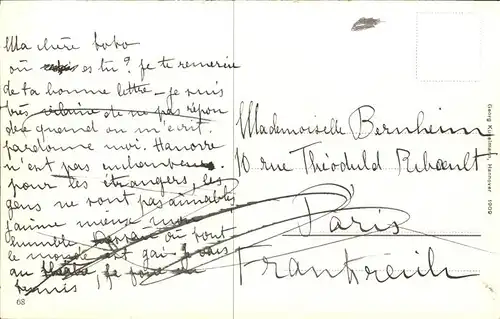 Ma chère bobo
où es tu? Je te remercie
de ta bonne lettre – je suis
très vilaine de ne pas répon
dre quand on m'écrit.
pardonne moi. Hanovre
n'est pas
pour les étrangers, les
gens ne sont pas aimables
j'aime mieux
humble où tout
le monde est gai. Je vais
au théâtre, je joue au
tennis
68
Mademoiselle Bernheim
10 rue Théodule Ribault
Paris
Frankreich
Georg Kugelmann, Hannover 1909